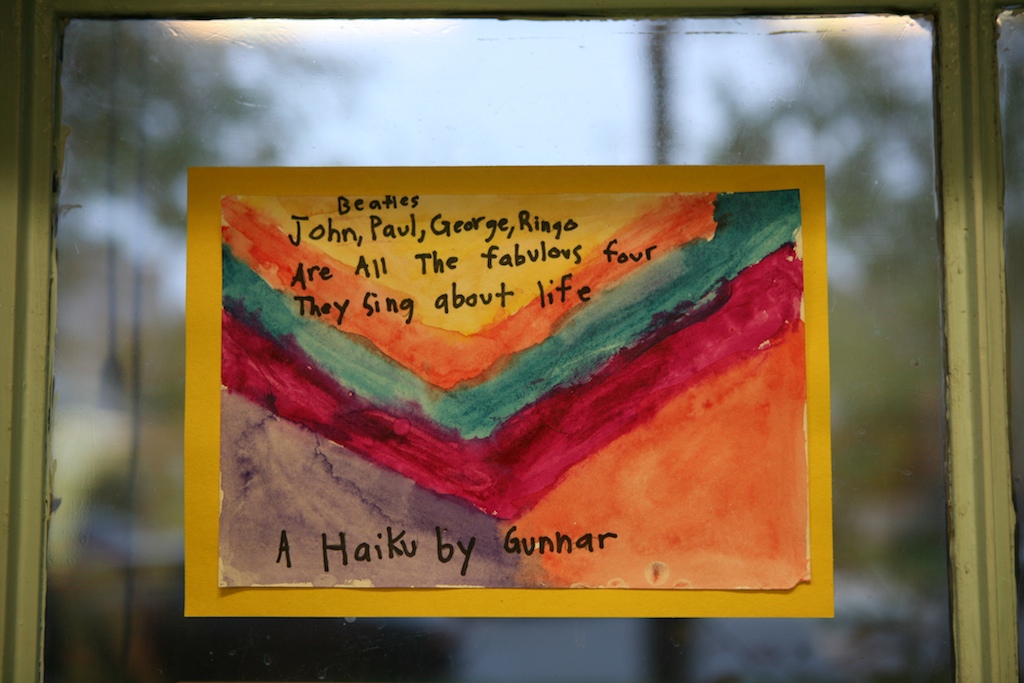 Beatles
John, Paul, George, Ringo
Are All The fabulous four
They Sing about life
A Haiku by Gunnar